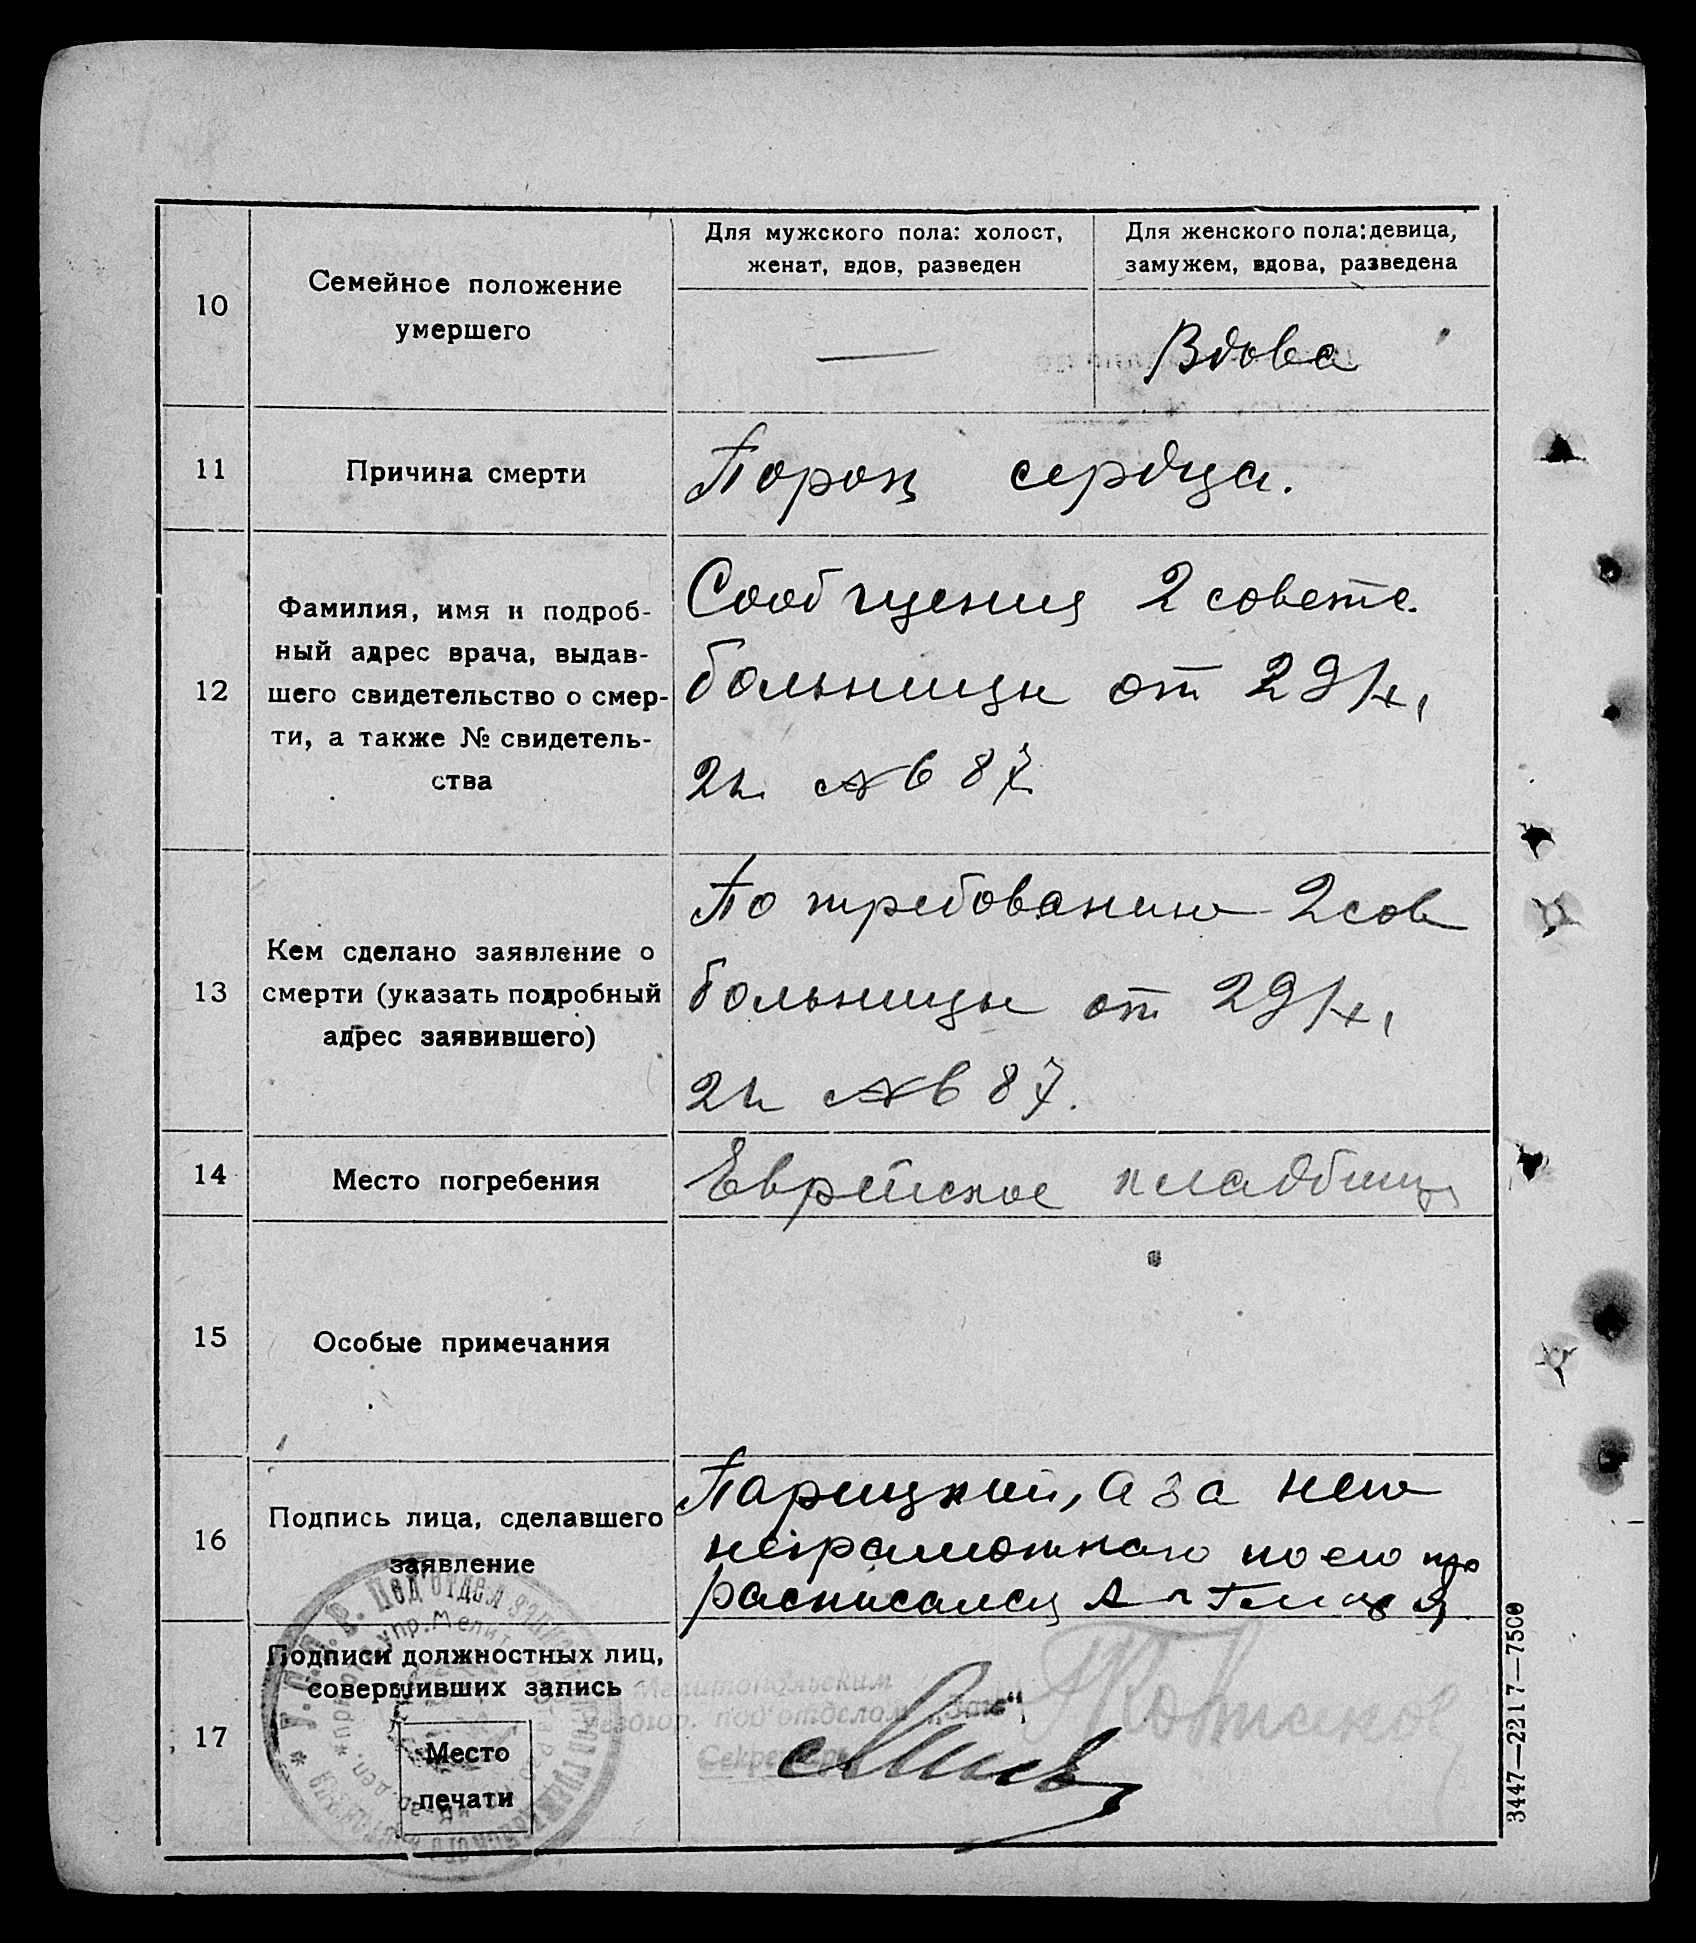 Для мужского пола: холост,
женат, вдов, разведен
Для женского пола: девица,
замужем, вдова, разведена
10
Семейное положение
умершего
—
Вдова
11
Причина смерти
Порок сердца.
12
Фамилия, имя и подроб-
ный адрес врача, выдав-
шего свидетельство о смер-
ти, а также № свидетель-
ства
Сообщения 2 советс.
больницы от 29/X,
2г. № 87
13
Кем сделано заявление о
смерти (указать подробный
адрес заявившего)
По требованию 2 сов
больницы от 29/X,
2г № 87.
14
Место погребения
Еврейское кладбище
15
Особые примечания
16
Подпись лица, сделавшего
заявление
Парицкий, а за него
неграмотного по его
расписался
17
Подписи должностных лиц,
совершивших запись
Место
печати
Мелитопольским
под'отделом „Загс“
Секретарь
Под'отдел
упр. Мелит
3447—2217—7500